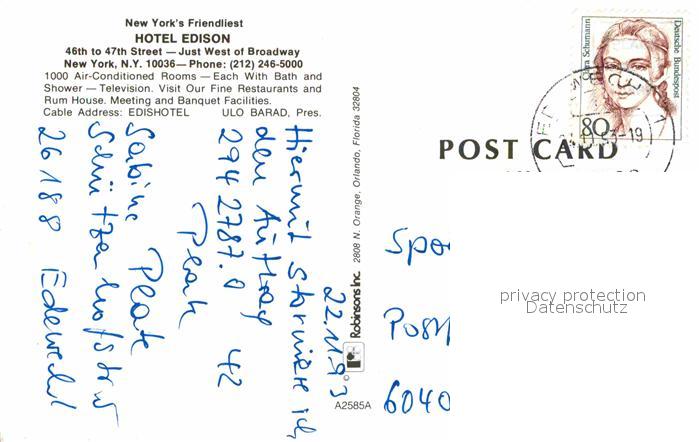 New York's Friendliest
HOTEL EDISON
46th to 47th Street — Just West of Broadway
New York, N.Y. 10036 — Phone: (212) 246-5000
1000 Air-Conditioned Rooms — Each With Bath and
Shower — Television. Visit Our Fine Restaurants and
Rum House. Meeting and Banquet Facilities.
Cable Address: EDISHOTEL ULO BARAD, Pres.
22.11.93
Hiermit storniere ich
den Auftrag
294 2787.0 42
Plate
Sabine Plate
26188 Edewecht
Robinsons Inc. 2808 N. Orange, Orlando, Florida 32804
A2585A
POST CARD
Clara Schumann
Deutsche Bundespost
80
Spo
Post
6040
privacy protection
Datenschutz